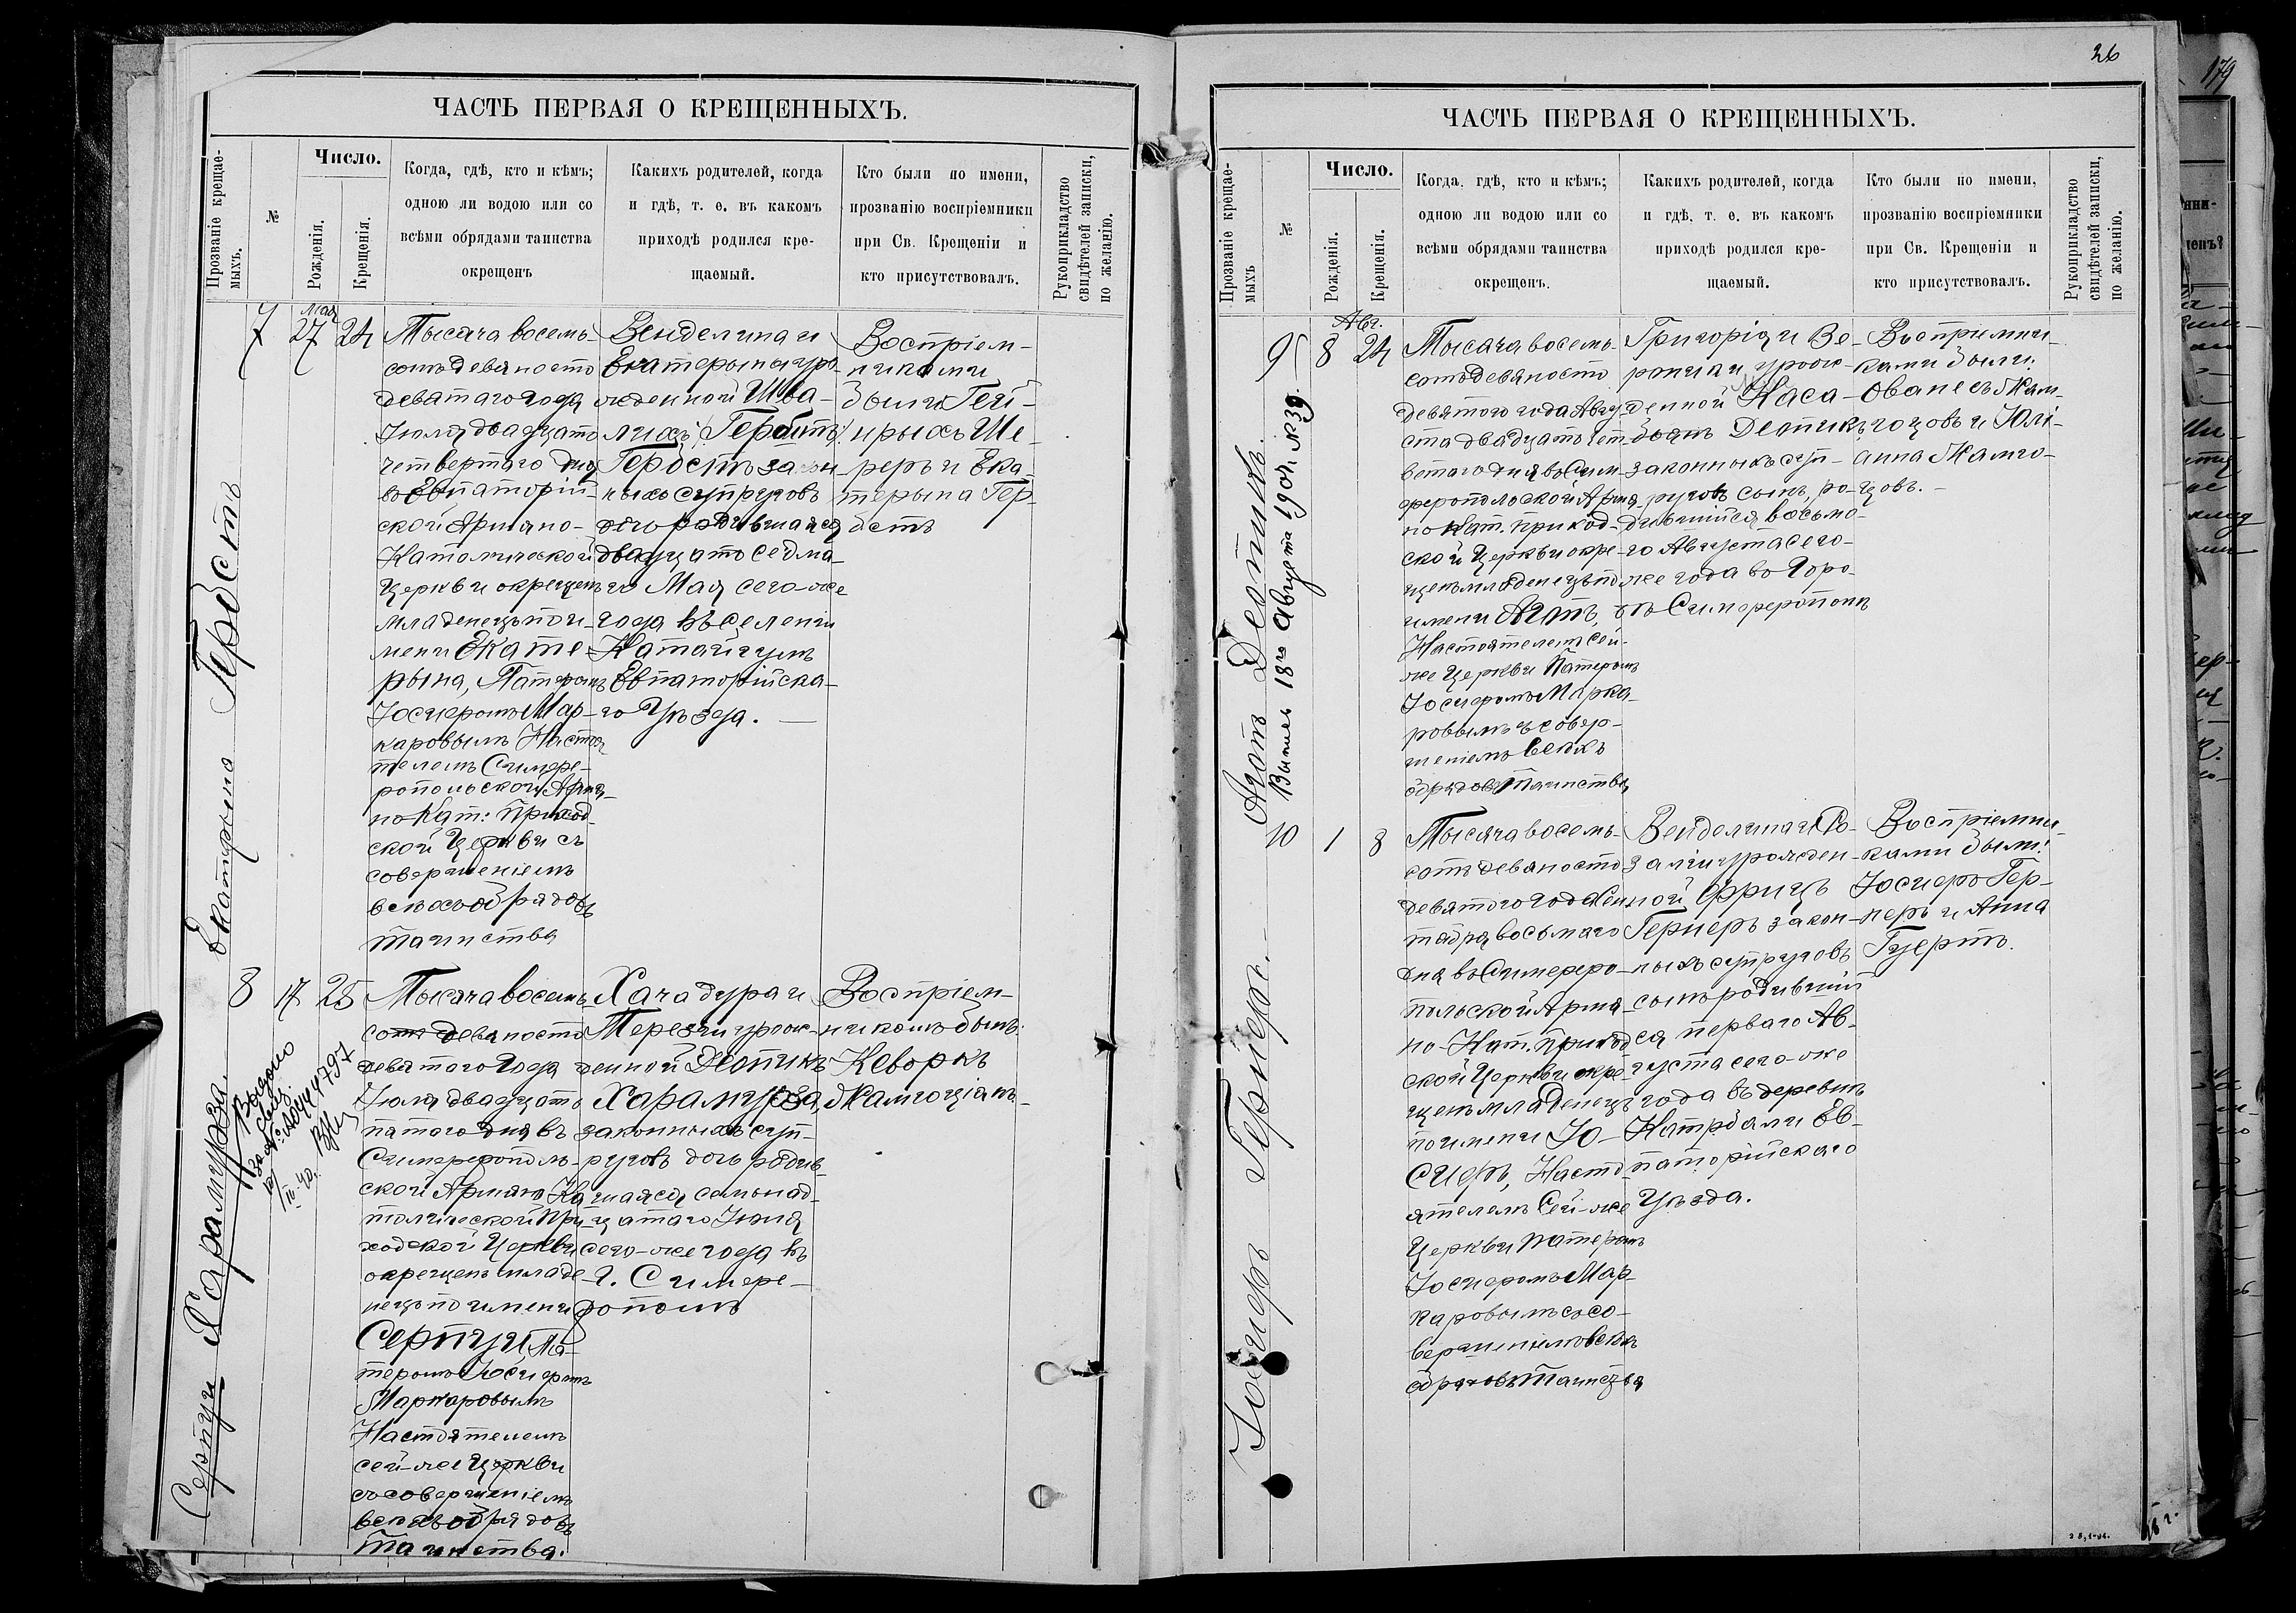 26
179
ЧАСТЬ ПЕРВАЯ О КРЕЩЕННЫХЪ.
Прозваніе крещае-
мыхъ.
№
Число.
Рожденія.
Крещенія.
Когда, гдѣ, кто и кѣмъ;
одною ли водою или со
всѣми обрядами таинства
окрещенъ
Какихъ родителей, когда
и гдѣ, т. е. въ какомъ
приходѣ родился кре-
щаемый.
Кто были по имени,
прозванію воспріемники
при Св. Крещеніи и
кто присутствовалъ.
Рукоприкладство
свидѣтелей записки,
по желанію.
Екатерына Гербстъ
7
Мая
27
24
Тысяча восемь-
сотъ девяносто
девятаго года
Іюля двадцать
четвертаго дня
въ Евпаторій-
ской Армяно-
Католической
Церкви окрещенъ
младенецъ по и-
мени Екате-
рына, Патеромъ
Іосифомъ Мар-
каровымъ Настоя
телемъ Симфе-
ропольской Армя-
но Кат: Приход
ской Церкви съ
совершеніемъ
всѣхъ обрядовъ
таинства
Венделина и
Екатерыны уро-
жденной Шва-
Гербстъ закон-
ныхъ супруговъ
дочь родившаяся
двадцать седма-
го Мая сего-же
года въ селеніи
Катайгумъ
Евпаторійска-
го Уѣзда.
Воспріем-
никами
были Гей-
нрыхъ Ше-
реръ и Ека-
терына Гер-
бстъ
Серпуи Харамурза.
Выдано
свид.
8
17
25
Тысяча восемь
сотъ девяносто
девятаго года
Іюля двадцать
пятаго дня въ
Симферополь-
ской Армяно Ка
толической При
ходской Церкви
окрещенъ младе-
нецъ по имени
Серпуи, Па-
теромъ Іосифомъ
Маркаровымъ
Настоятелемъ
сей-же Церкви
съ совершеніемъ
всѣхъ обрядовъ
Таинства.
Хачадура и
Терезіи урож-
денной Деопикъ
Харамурза,
законныхъ суп-
руговъ дочь родив-
шаяся семьнад-
цатаго Іюня
сего-же года въ
г. Симфе-
рополь
Воспріем-
никомъ былъ:
Кеворкъ
Жамгоціанъ
ЧАСТЬ ПЕРВАЯ О КРЕЩЕННЫХЪ.
Прозваніе крещае-
мыхъ
№
Число.
Рожденія.
Крещенія.
Когда, гдѣ, кто и кѣмъ;
одною ли водою или со
всѣми обрядами таинства
окрещенъ.
Какихъ родителей, когда
и гдѣ, т. е. въ какомъ
приходѣ родился кре-
щаемый.
Кто были по имени,
прозванію воспріемники
при Св. Крещеніи и
кто присутствовалъ.
Рукоприкладство
свидѣтелей записки,
по желанію.
Агопъ Деопикъ.
18го Августа 1901. №39.
9
Авг.
8
24
Тысяча восемь-
сотъ девяносто
девятаго года Авгу-
ста двадцать чет-
вертаго дня въ Сим-
феропольской Армя-
но Кат. приход-
ской Церкви окре-
щенъ младенецъ по
имени Агопъ,
Настоятелемъ сей-
же Церкви Патеромъ
Іосифомъ Марка-
ровымъ съ совер-
шеніемъ всѣхъ
обрядовъ Таинства
Григорія и Ве-
роники урож-
денной Каса-
Деопикъ
законныхъ суп-
руговъ сынъ, ро-
дившійся восьма-
го Августа сего-
же года въ горо-
дѣ Симферополѣ
Воспріемни-
ками были:
Ованесъ Жам-
гоцовъ и Юлі-
анна Жамго-
цовъ.
Іосифъ Гернеръ.
10
1
8
Тысяча восемь-
сотъ девяносто
девятаго года Сен
тября восьмаго
дня въ Симферо-
польской Армя-
но-Кат. Приход
ской Церкви окре-
щенъ младенецъ
по имени Іо-
сифъ, Насто
ятелемъ Сей-же
Церкви Патеромъ
Іосифомъ Мар-
каровымъ съ со-
вершеніемъ всѣхъ
обрядовъ Таинства
Венделина и Ро-
заліи урожден-
ной Фрицъ
Гернеръ закон-
ныхъ супруговъ
сынъ родившій
ся перваго Ав-
густа сего-же
года въ деревнѣ
Ев-
паторійскаго
Уѣзда.
Воспріемни-
ками были:
Іосифъ Гер-
неръ и Анна